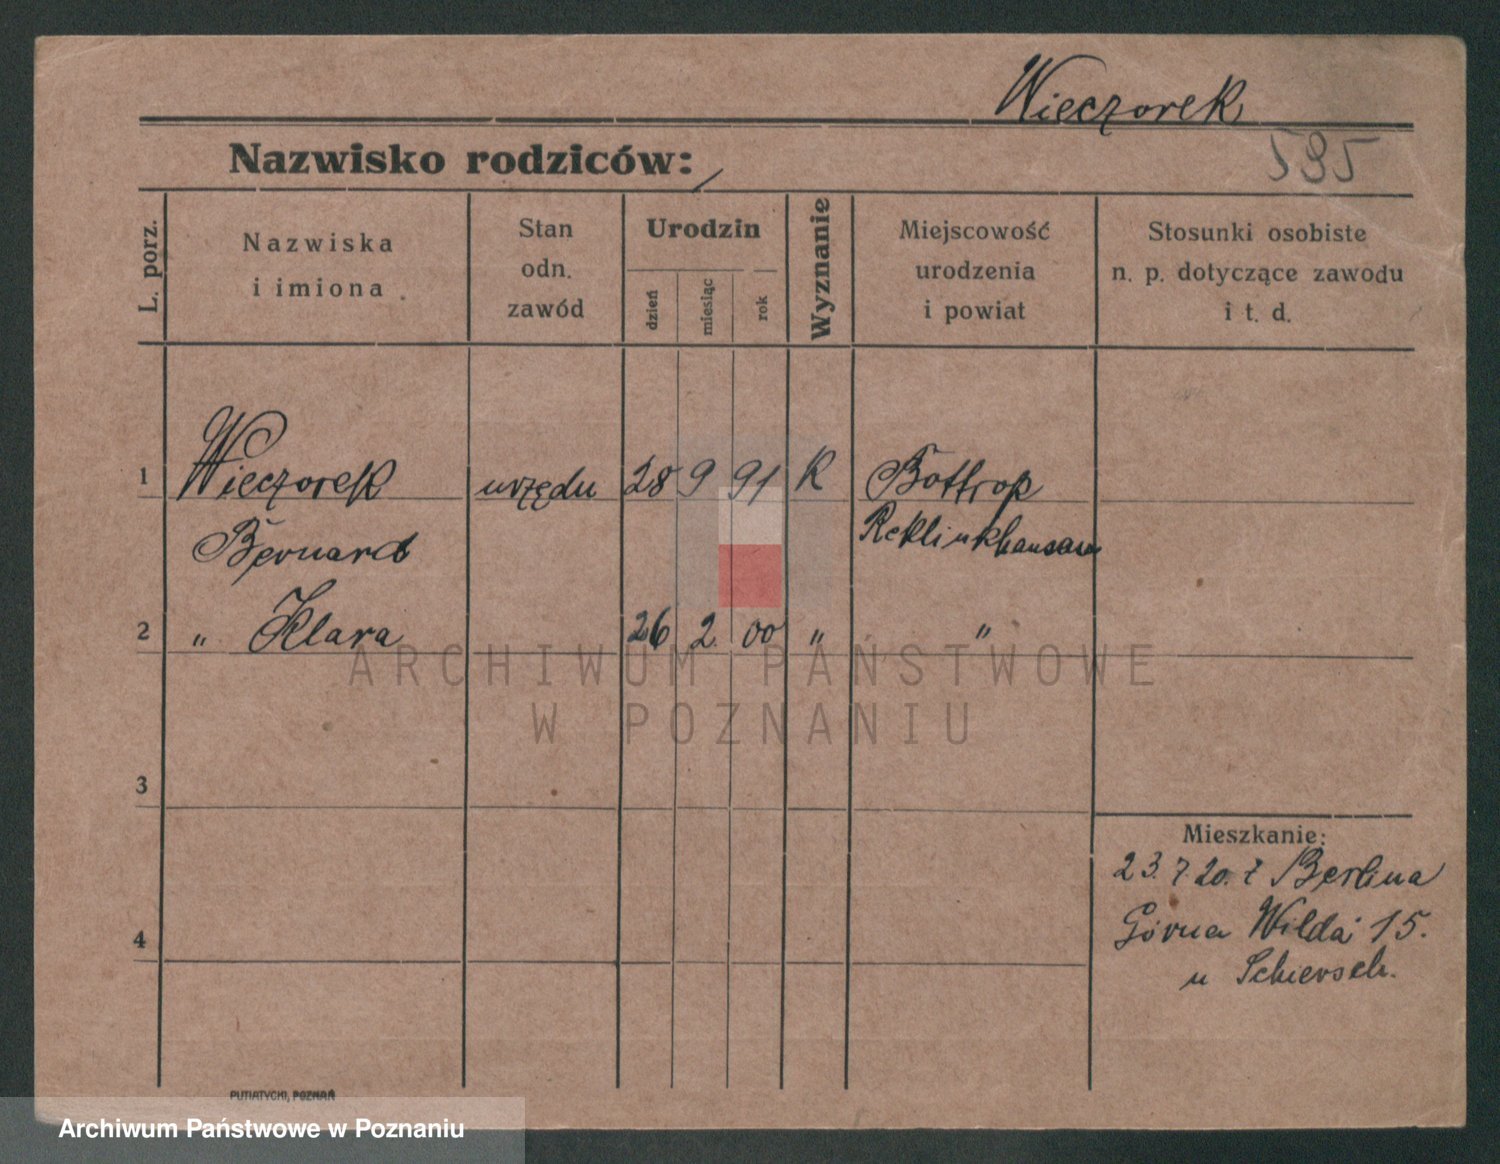 Wieczorek
Nazwisko rodziców:
595
L. porz.
Nazwiska
i imiona
Stan
odn.
zawód
Urodzin
dzień
miesiąc
rok
Wyznanie
Miejscowość
urodzenia
i powiat
Stosunki osobiste
n. p. dotyczące zawodu
i t. d.
1 Wieczorek urzędn 28 9 91 K Bottrop
Bernard Reklinkhausen
2 " Klara 26 2. 00 " "
ARCHIWUM PAŃSTWOWE
W POZNANIU
3
Mieszkanie:
23.7.20. z Berlina
4 Górna Wilda 15.
u Schiersch.
PUTIATYCKI, POZNAŃ
Archiwum Państwowe w Poznaniu